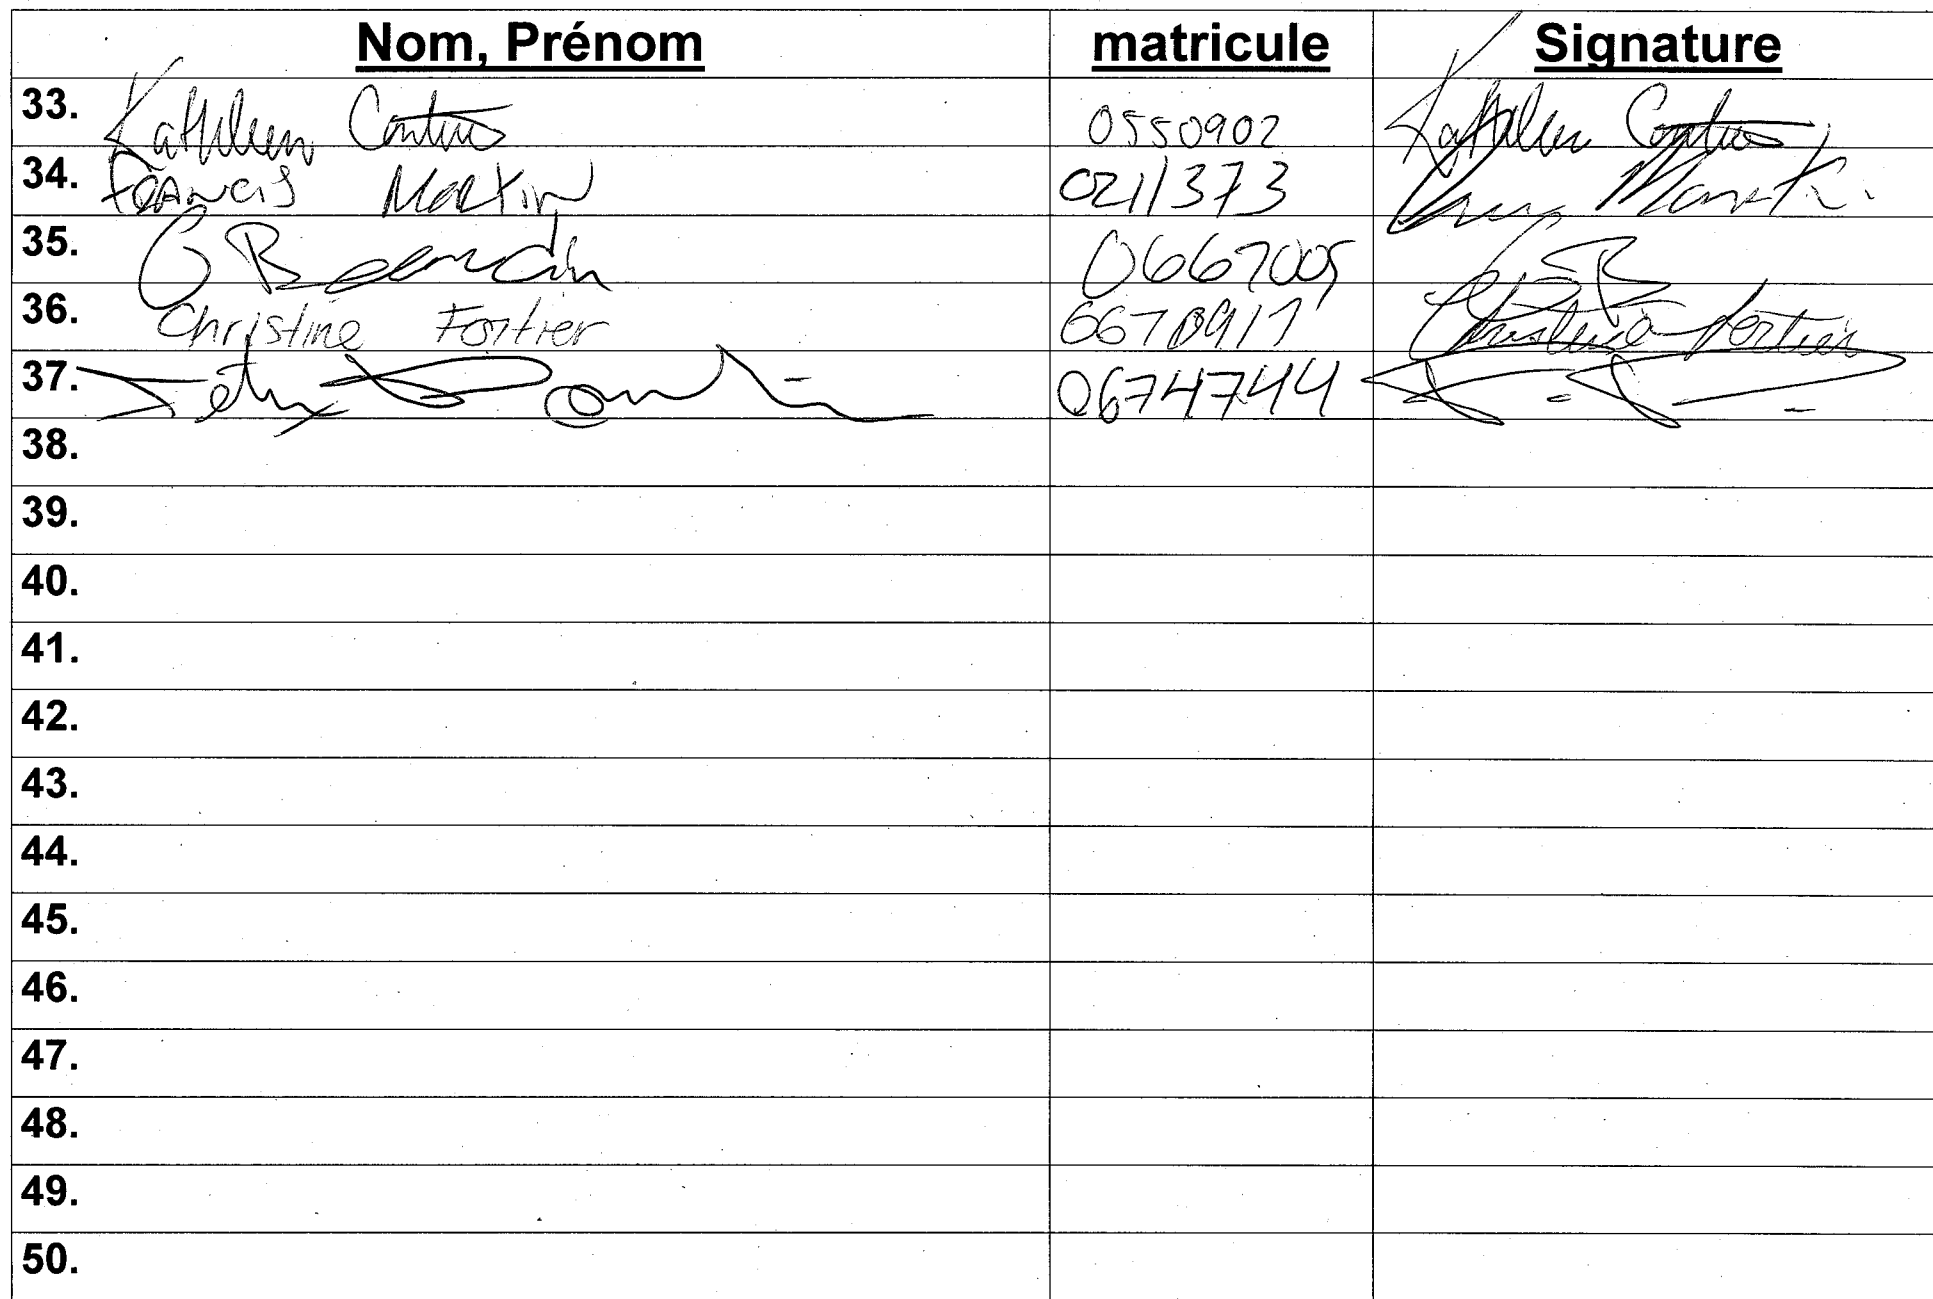 Nom, Prénom matricule Signature
33. Kathleen 0550902 Kathleen
34. Francis Martin 0211373 Martin
35. C 0667005
36. Christine Fortier Christine Fortier
37. 0674744
38.
39.
40.
41.
42.
43.
44.
45.
46.
47.
48.
49.
50.